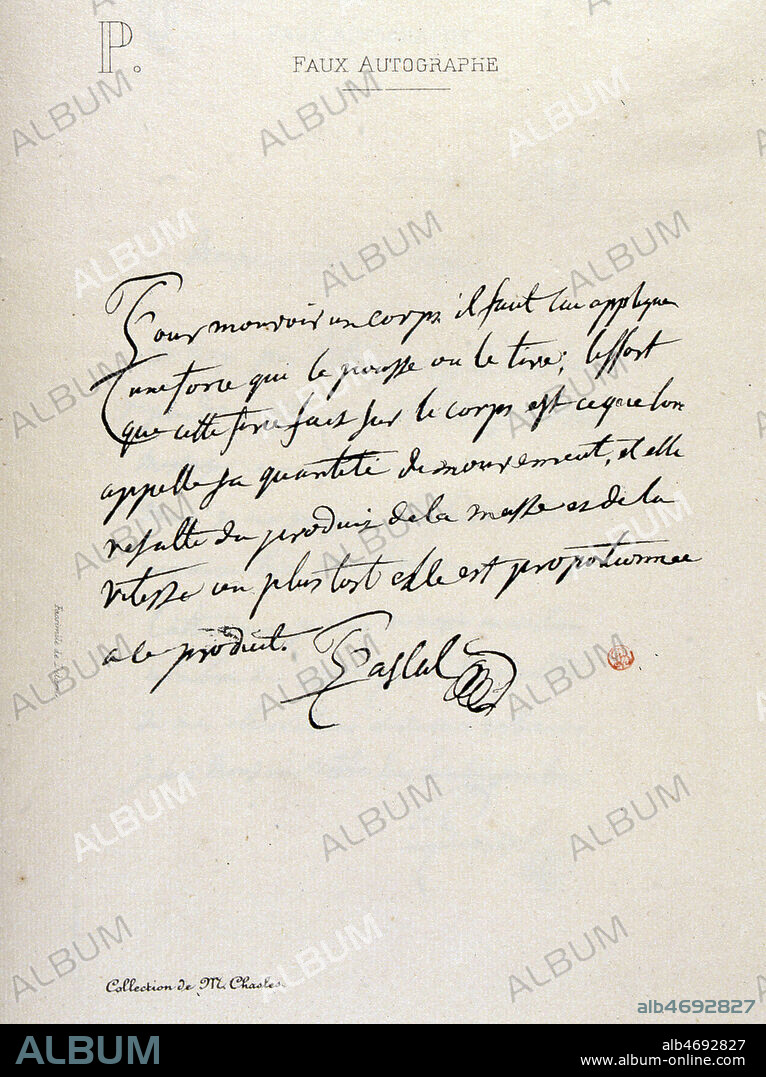 P.
FAUX AUTOGRAPHE
Pour mouvoir un corps il faut lui appliquer
une force qui le pousse ou le tire; leffort
que cette force fait sur le corps est ce que lon
appelle sa quantité de mouvement, et elle
resulte du produit de la masse et de la
vitesse ou plus tost elle est proportionnee
a ce produit. Pascal
Facsimile de
Collection de M. Chasles.
ALBUM
alb4692827
ALBUM
alb4692827
www.album-online.com